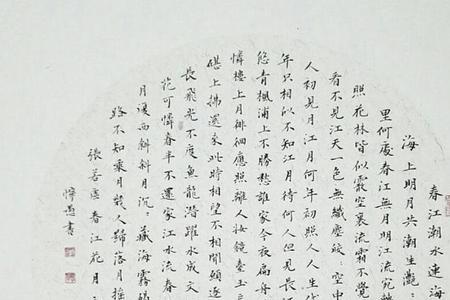 春江潮水連海
海上明月共潮生灔
里何處春江無月明江流宛轉
照花林皆似霰空裏流霜不覺
看不見江天一色無纖塵皎〻空中
人初見月江月何年初照人人生代
年只相似不知江月待何人但見長江
悠青楓浦上不勝愁誰家今夜扁舟
憐樓上月徘徊應照離人妝鏡臺玉
碪上拂還來此時相望不相聞願逐
長飛光不度魚龍潛躍水成文
花可憐春半不還家江水流春
月復西斜斜月沉〻藏海霧碣
路不知乘月幾人歸落月搖
張若虛春江花月
書